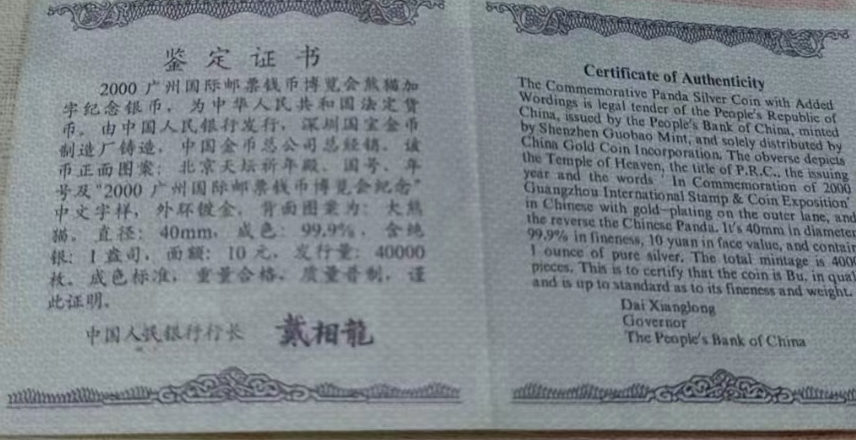 鉴定证书
2000 广州国际邮票钱币博览会熊猫加
字纪念银币，为中华人民共和国法定货
币。由中国人民银行发行，深圳国宝金币
制造厂铸造，中国金币总公司总经销。该
币正面图案：北京天坛祈年殿、国号、年
号及“2000 广州国际邮票钱币博览会纪念”
中文字样，外环镀金。背面图案为：大熊
猫。直径：40mm，成色：99.9%，含纯
银：1 盎司，面额：10 元，发行量：40000
枚。成色标准，重量合格，质量普制，谨
此证明。
中国人民银行行长 戴相龍
Certificate of Authenticity
The Commemorative Panda Silver Coin with Added
Wordings is legal tender of the People's Republic of
China, issued by the People's Bank of China, minted
by Shenzhen Guobao Mint, and solely distributed by
China Gold Coin Incorporation. The obverse depicts
the Temple of Heaven, the title of P.R.C., the issuing
year and the words ' In Commemoration of 2000
Guangzhou International Stamp & Coin Exposition'
in Chinese with gold-plating on the outer lane, and
the reverse the Chinese Panda. It's 40mm in diameter
99.9% in fineness, 10 yuan in face value, and contain
1 ounce of pure silver. The total mintage is 4000
pieces. This is to certify that the coin is Bu. in qual
and is up to standard as to its fineness and weight.
Dai Xianglong
Governor
The People's Bank of China